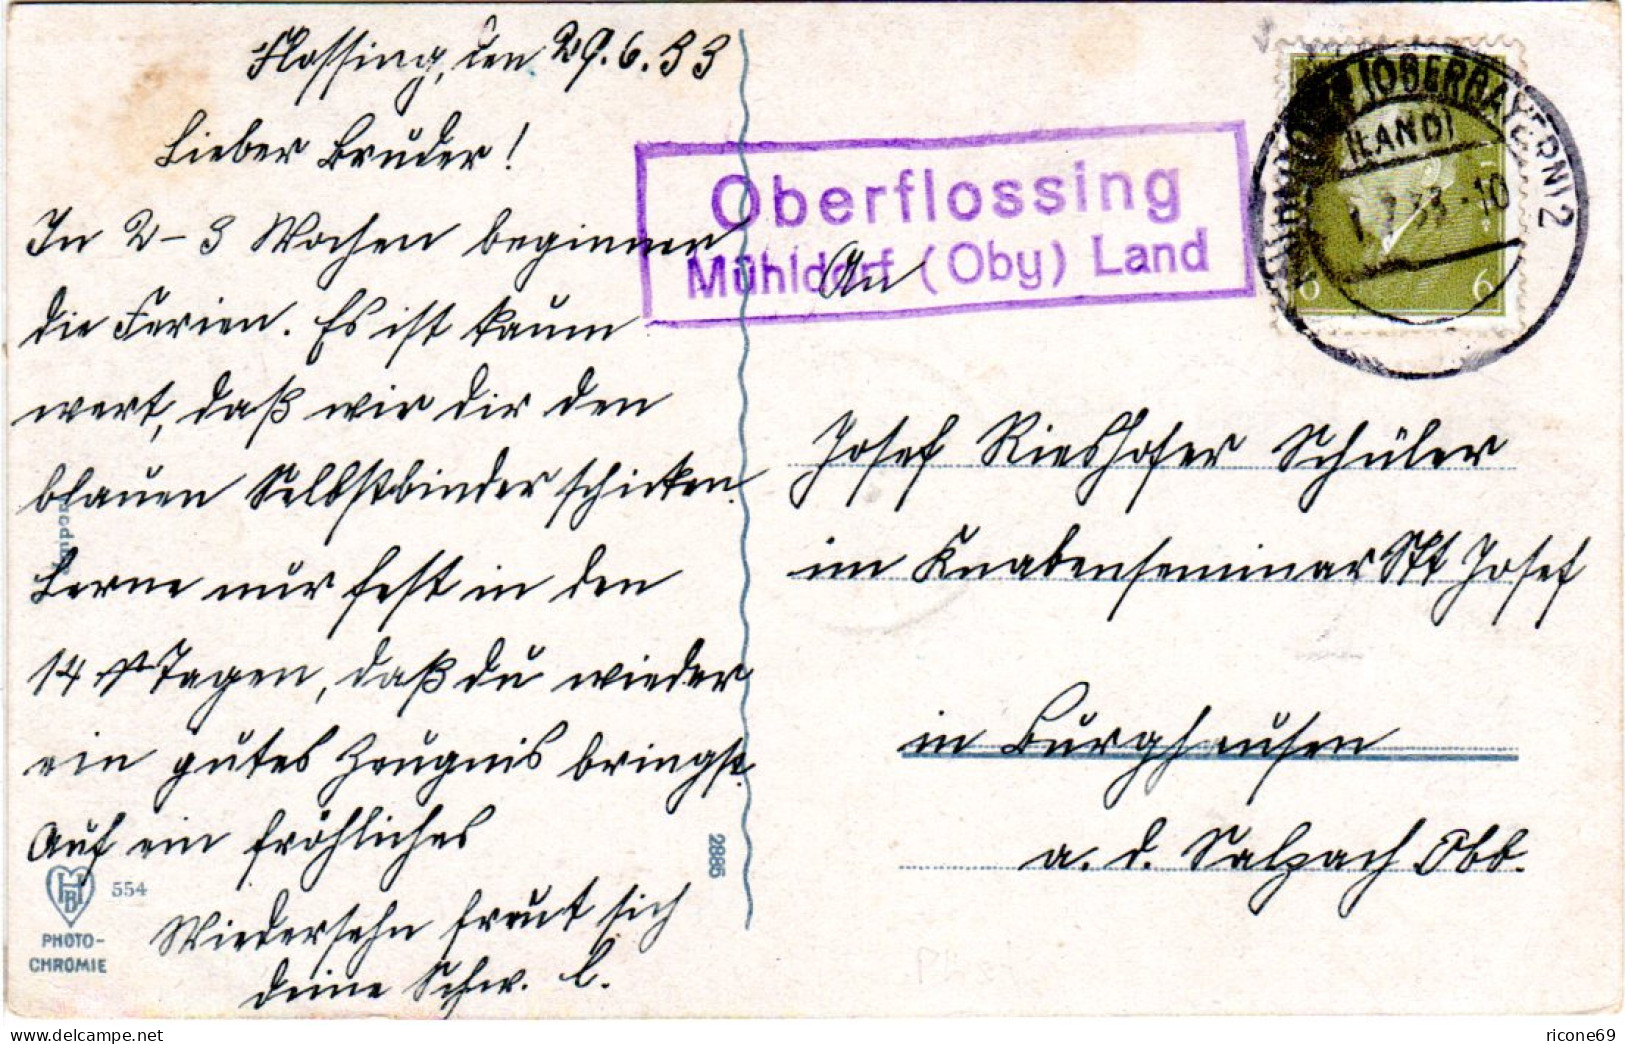 Flossing, den 29.6.33
Lieber Bruder!
In 2-3 Wochen beginnen
die Ferien. Es ist kaum
wert, daß wir dir den
blauen Selbstbinder schicken.
Lerne nur fest in den
14 Tagen, daß du wieder
ein gutes Zeugnis bringst.
Auf ein fröhliches
Wiedersehn freut sich
deine Schw. L.
HBI
554
PHOTO-
CHROMIE
2886
Oberflossing
Mühldorf (Oby) Land
(OBERBAYERN) 2
(LAND)
1.7.33.-10
6 6
An
Josef Rieshofer Schüler
im Knabenseminar Skt Josef
in Burghausen
a. d. Salzach Obb.
delcampe.net
ricone69